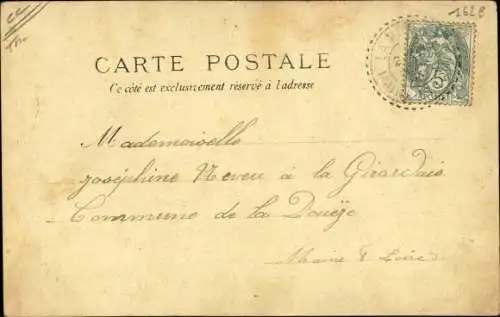 1628
CARTE POSTALE
Ce côté est exclusivement réservé à l'adresse
5
Mademoiselle
Joséphine Neveu à la Girardais
Commune de la Pouëze
Maine & Loire